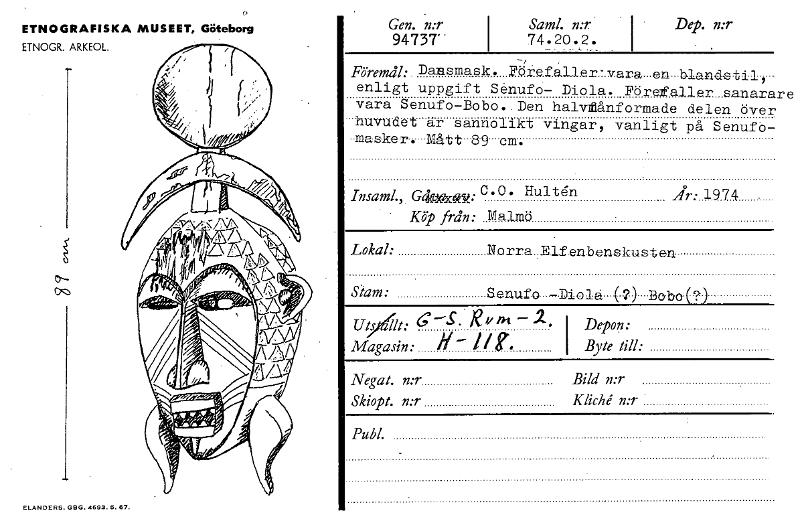 ETNOGRAFISKA MUSEET, Göteborg
ETNOGR. ARKEOL.
89 cm
ELANDERS. GBG. 4693. 5. 67.
Gen. n:r
94737
Saml. n:r
74.20.2.
Dep. n:r
Föremål: Dansmask. Förefaller vara en blandstil,
enligt uppgift Senufo- Diola. Förefaller sanarare
vara Senufo-Bobo. Den halvmånformade delen över
huvudet är sannolikt vingar, vanligt på Senufo-
masker. Mått 89 cm.
Insaml., Gåva av: C.O. Hultén År: 1974
Köp från: Malmö
Lokal: Norra Elfenbenskusten
Stam: Senufo -Diola (?) Bobo(?)
Utställt: G-S. Rum-2. Depon:
Magasin: H-118. Byte till:
Negat. n:r Bild n:r
Skiopt. n:r Kliché n:r
Publ.